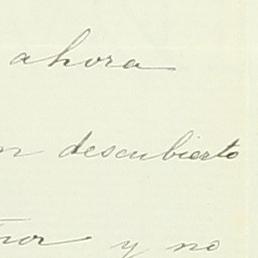 ahora
descubierto
y no